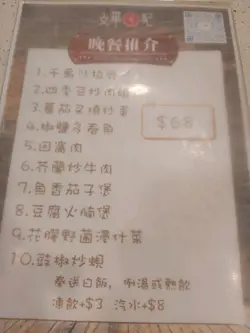 文華冰記
晚餐推介
1.干扁
2.四季豆炒肉
3.蕃茄叉燒炒蛋
4.椒鹽多春魚
5.回窩肉
6.芥蘭炒牛肉
7.魚香茄子煲
8.豆腐火腩煲
9.花膠野菌浸什菜
10.豉椒炒蜆
$68
奉送白飯，例湯或熱飲
凍飲+$3 汽水+$8